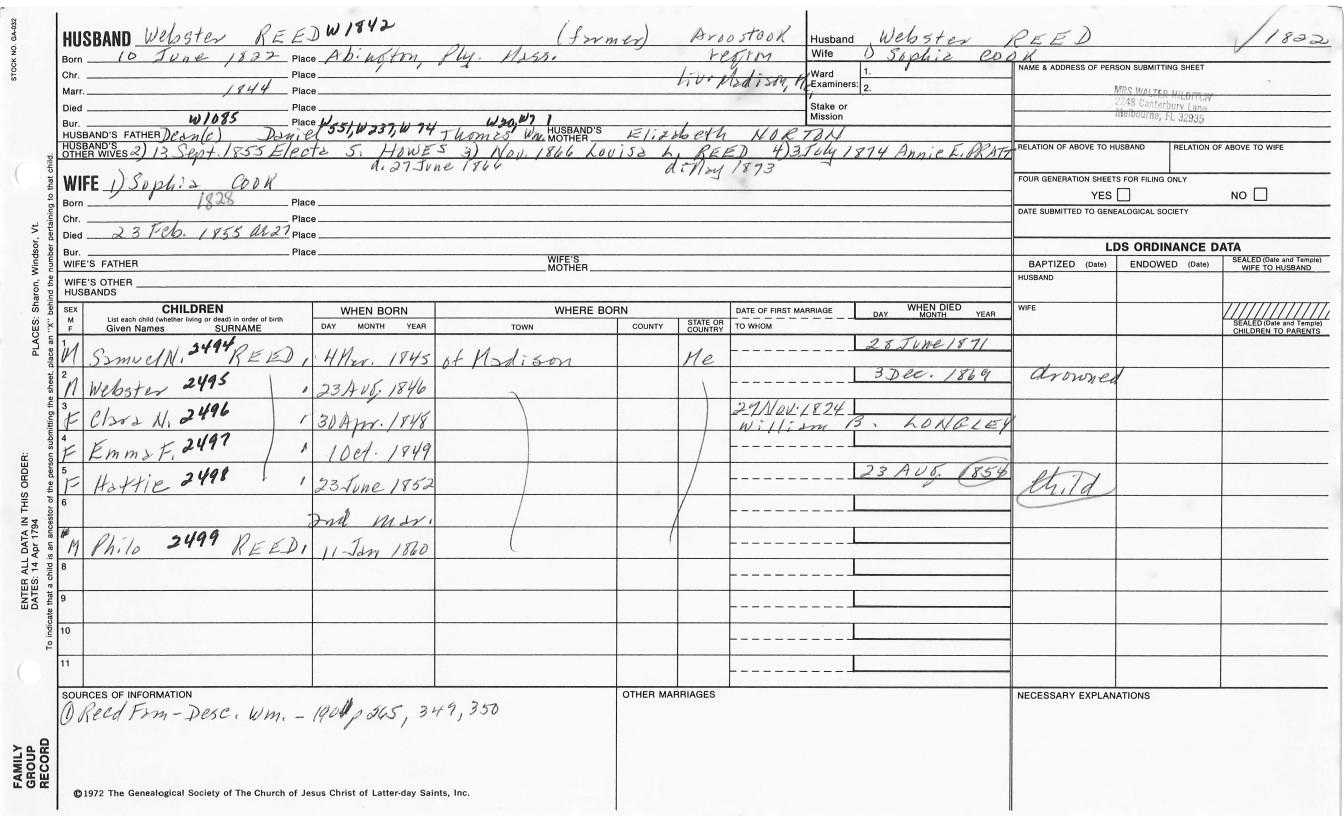 STOCK NO. GA-032
HUSBAND Webster REED W1842 (farmer) Aroostook
Born 10 June 1822 Place Abington, Ply. Mass. region
Chr. Place liv. Madison, Me
Marr. 1844 Place
Died Place
Bur. W1085 Place W551, W237, W74 W20, W7 1
HUSBAND'S FATHER Dean(e) Daniel Thomas Wm. HUSBAND'S MOTHER Elizabeth NORTON
HUSBAND'S OTHER WIVES 2) 13 Sept. 1855 Electa S. HOWES 3) Nov. 1866 Louisa L. REED 4) 3 July 1874 Annie E. PRATT
d. 27 June 1866 d. May 1873
Husband Webster REED √1822
Wife 1) Sophia COOK
Ward Examiners: 1.
2.
Stake or Mission
NAME & ADDRESS OF PERSON SUBMITTING SHEET
MRS WALTER HILDITCH
2248 Canterbury Lane
Melbourne, FL 32935
RELATION OF ABOVE TO HUSBAND RELATION OF ABOVE TO WIFE
FOUR GENERATION SHEETS FOR FILING ONLY
YES NO
DATE SUBMITTED TO GENEALOGICAL SOCIETY
LDS ORDINANCE DATA
BAPTIZED (Date) ENDOWED (Date) SEALED (Date and Temple) WIFE TO HUSBAND
HUSBAND
WIFE
SEALED (Date and Temple) CHILDREN TO PARENTS
WIFE 1) Sophia COOK
Born 1828 Place
Chr. Place
Died 23 Feb. 1855 ae 27 Place
Bur. Place
WIFE'S FATHER WIFE'S MOTHER
WIFE'S OTHER HUSBANDS
SEX M F CHILDREN List each child (whether living or dead) in order of birth Given Names SURNAME WHEN BORN DAY MONTH YEAR WHERE BORN TOWN COUNTY STATE OR COUNTRY DATE OF FIRST MARRIAGE TO WHOM WHEN DIED DAY MONTH YEAR
1 M Samuel N. 2494 REED 4 Mar. 1845 of Madison Me 28 June 1871
2 M Webster 2495 23 Aug. 1846 3 Dec. 1869 drowned
3 F Clara N. 2496 30 Apr. 1848 27 Nov. 1874 William B. LONGLEY
4 F Emma F. 2497 1 Oct. 1849
5 F Hattie 2498 23 June 1852 23 Aug. 1854 child
6 2nd mar.
M Philo 2499 REED 11 Jan 1860
8
9
10
11
SOURCES OF INFORMATION
① Reed Fam-Desc. Wm. - 1901 p 265, 349, 350
OTHER MARRIAGES
NECESSARY EXPLANATIONS
©1972 The Genealogical Society of The Church of Jesus Christ of Latter-day Saints, Inc.
FAMILY GROUP RECORD
ENTER ALL DATA IN THIS ORDER:
DATES: 14 Apr 1794 PLACES: Sharon, Windsor, Vt.
To indicate that a child is an ancestor of the person submitting the sheet, place an "X" behind the number pertaining to that child.